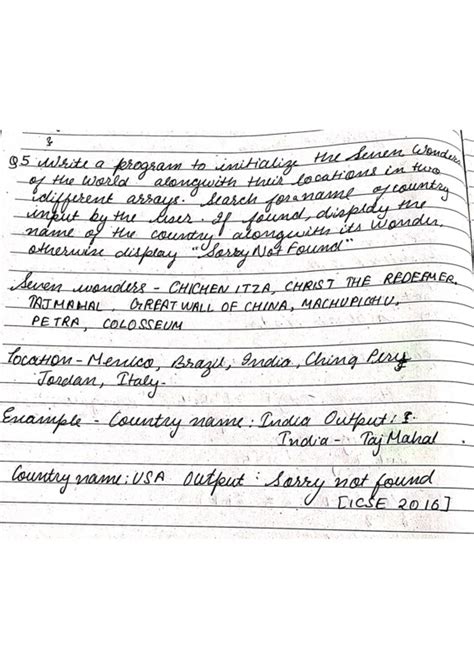 }
Q5 Write a program to initialize the Seven Wonders
of the World alongwith their locations in two
different arrays. Search for a name of country
input by the user. If found, display the
name of the country alongwith its Wonder,
otherwise display "Sorry Not Found"
Seven wonders - CHICHEN ITZA, CHRIST THE REDEEMER,
TAJ MAHAL, GREAT WALL OF CHINA, MACHU PICHU,
PETRA, COLOSSEUM
Location - Mexico, Brazil, India, China Peru,
Jordan, Italy.
Example - Country name: India Output:
India - Taj Mahal
Country name: USA Output: Sorry not found
[ICSE 2016]